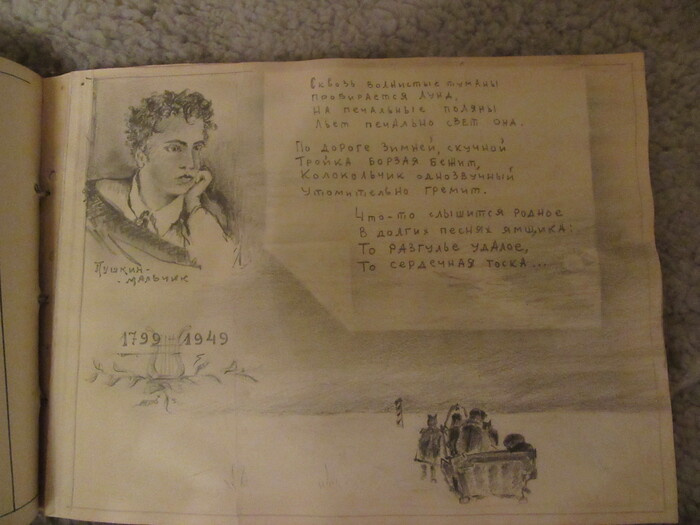 Сквозь волнистые туманы
пробирается луна,
на печальные поляны
льет печально свет она.
По дороге зимней, скучной
Тройка борзая бежит,
Колокольчик однозвучный
Утомительно гремит.
Что-то слышится родное
В долгих песнях ямщика:
То разгулье удалое,
То сердечная тоска...
Пушкин-
-мальчик
1799 - 1949